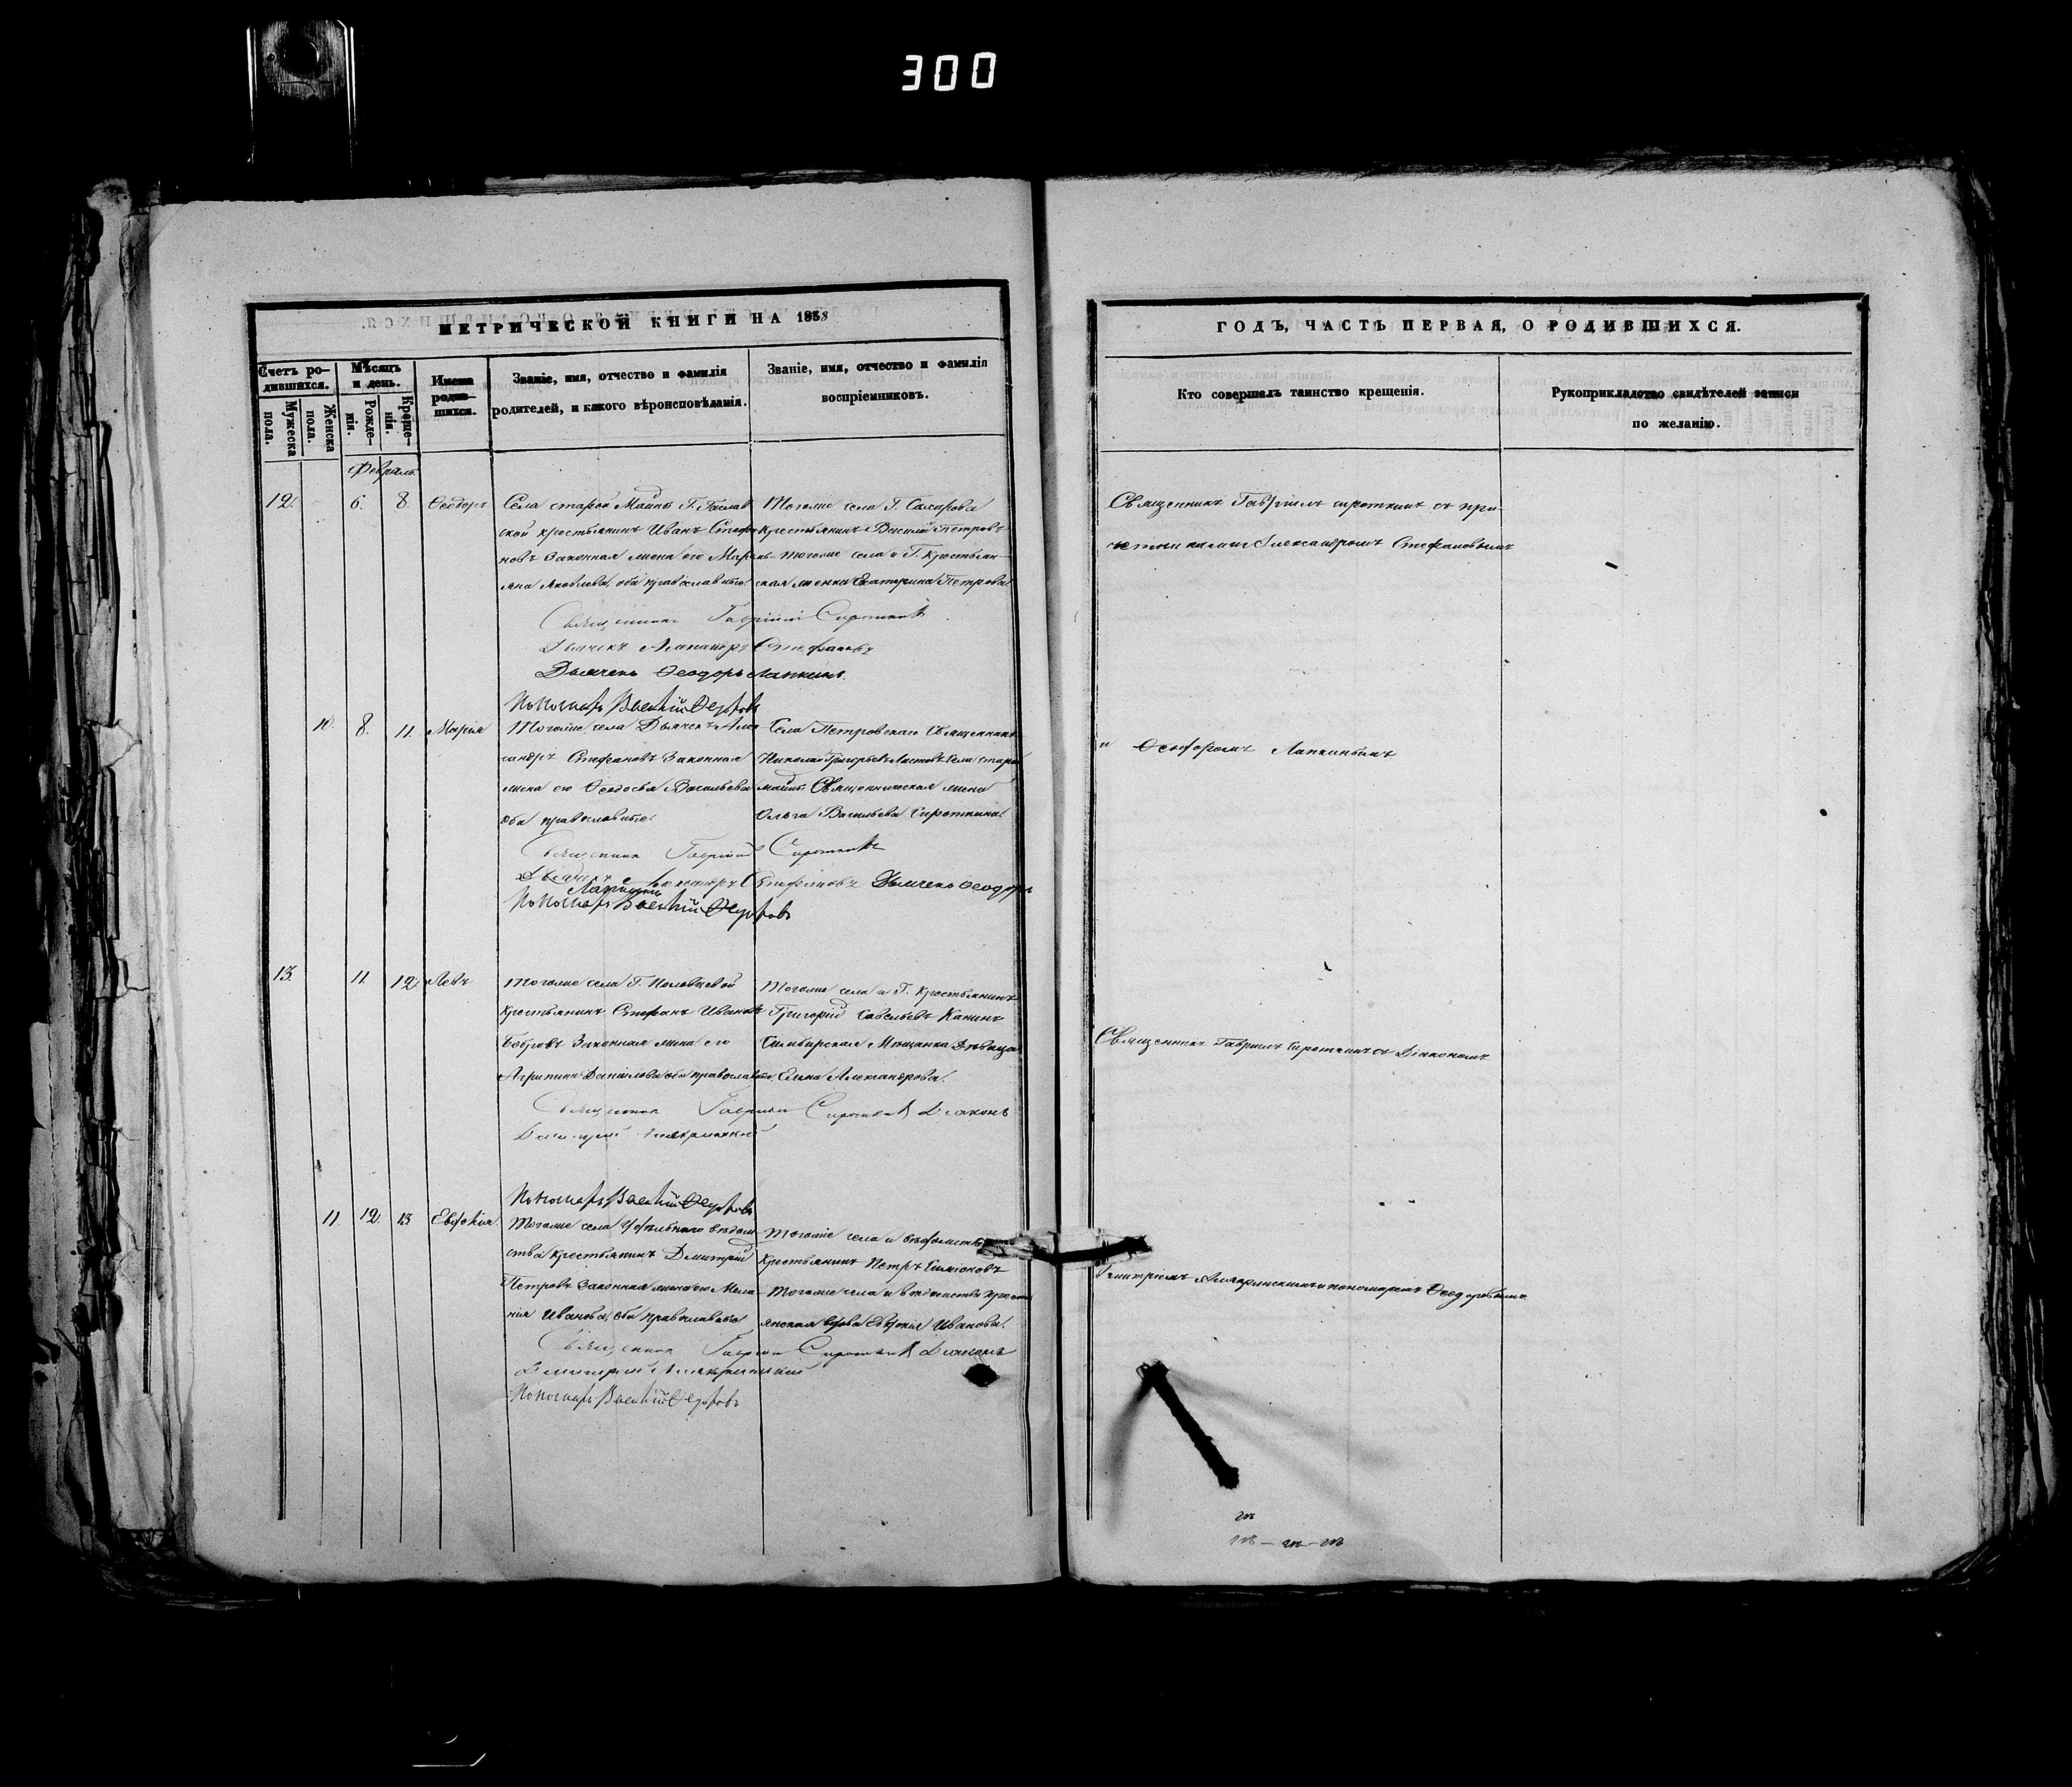 300
МЕТРИЧЕСКОЙ КНИГИ НА 1858
Счетъ ро-
дившихся.
Мужеска
пола.
Женска
пола.
Мѣсяцъ
и день.
Рожде-
нія.
Креще-
нія.
Имена
родив-
шихся.
Званіе, имя, отчество и фамилія
родителей, и какого вѣроисповѣданія.
Званіе, имя, отчество и фамилія
воспріемниковъ.
Февраль
12. 6. 8. Ѳеодоръ
Села старой Майны Г.
ской крестьянинъ Иванъ Стефа
новъ Законная жена его Марь
яна Яковлева, оба православные
Тогоже села Г.
Крестьянинъ Василій Петровъ
Тогоже села и Г. Крестьян-
ская женка Екатерина Петрова
Священникъ Гавріилъ Сироткинъ
Дьячекъ Александръ Стефановъ
Дьячекъ Ѳеодоръ Лапкинъ.
Пономарь Василій Ѳедоровъ
10. 8. 11. Марія
Тогоже села Дьячекъ Алек
сандръ Стефановъ Законная
жена его Ѳеодосья Васильева
Оба православные.
Села Петровскаго Священникъ
Николай Григорьевъ Села старой
майны Священническая жена
Ольга Васильева Сироткина
Священникъ Гавріилъ Сироткинъ
Дьячекъ Александръ Стефановъ Дьячекъ Ѳеодоръ
Лапкинъ
Пономарь Василій Ѳедоровъ
13. 11. 12. Левъ
Тогоже села Г.
Крестьянинъ Стефанъ Ивановъ
Бобровъ Законная жена его
Агрипина Данилова оба православные
Тогоже села и Г. Крестьянинъ
Григорій Савельевъ Канинъ
Симбирская Мѣщанка Дѣвица
Елена Александрова.
Священникъ Гавріилъ Сироткинъ Діаконъ
Димитрій
Пономарь Василій Ѳедоровъ
11. 12. 13 Евдокія
Тогоже села Удѣльнаго вѣдом
ства Крестьянинъ Дмитрій
Петровъ Законная жена его Мела-
нія Иванова, оба православные
Тогоже села и вѣдомства
Крестьянинъ Петръ Симіоновъ
Тогоже села и вѣдомства Кресть
янская вдова Евдокія Иванова.
Священникъ Гавріилъ Сироткинъ Діаконъ
Димитрій
Пономарь Василій Ѳедоровъ
ГОДЪ, ЧАСТЬ ПЕРВАЯ, О РОДИВШИХСЯ.
Кто совершалъ таинство крещенія.
Рукоприкладство свидѣтелей записи
по желанію.
Священникъ Гавріилъ Сироткинъ съ при-
четниками Александромъ Стефановымъ
и Ѳеодоромъ Лапкинымъ
Священникъ Гавріилъ Сироткинъ съ Діакономъ
Димитріемъ и пономаремъ Ѳеодоровымъ